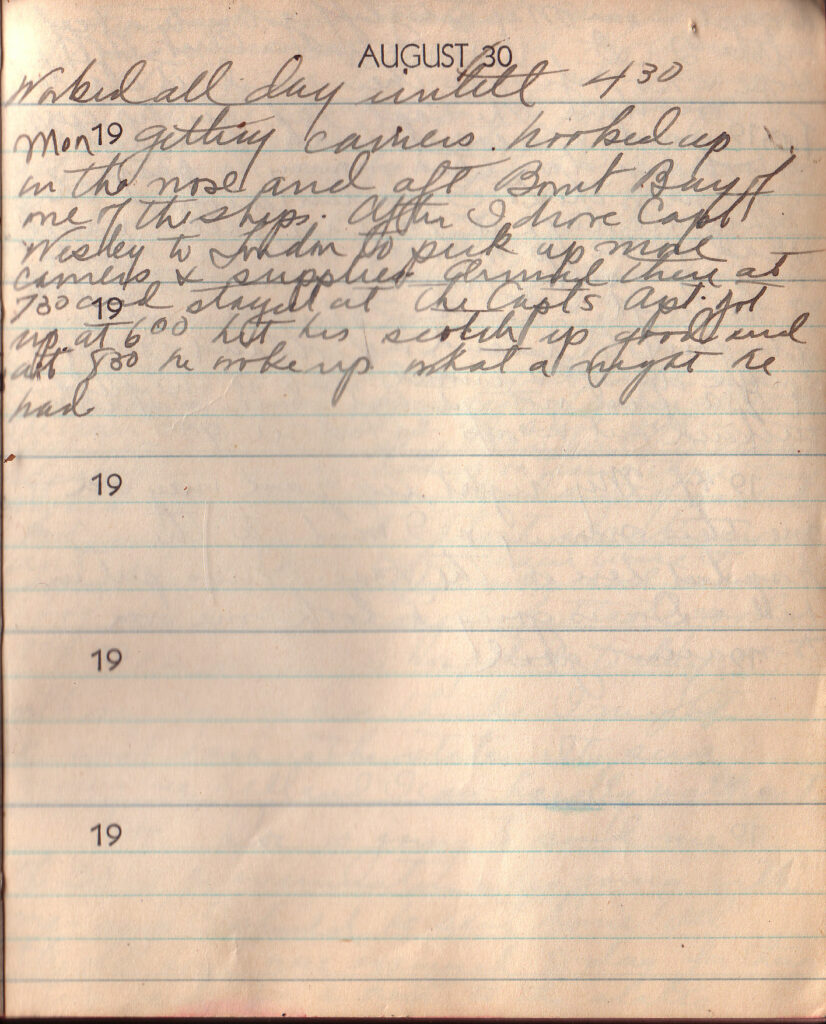 AUGUST 30
Worked all day untill 4 30
Mon 19 getting camers. hooked up
in the nose and aft Bomb Bay of
one of the ships. After I drove Capt
Wesley to London to pick up more
camers & supplies arrived there at
730 and stayed at the Capts Apt. got
19
up at 600 hit his scotch up good and
at 830 he woke up what a night he
had
19
19
19